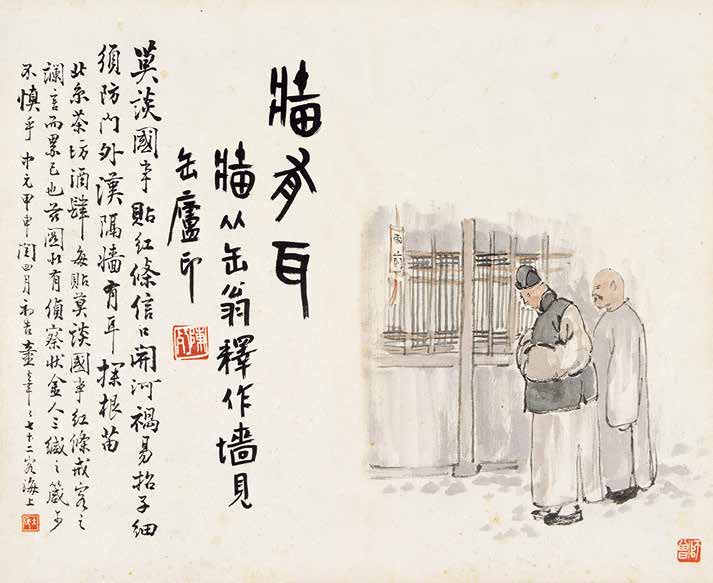 牆有耳
牆从缶翁釋作墻見
缶廬印
莫談國事貼紅條信口開河禍易招子細
須防門外漢隔牆有耳探根苗
北京茶坊酒肆每貼莫談國事紅條戒客之
讕言而累己也茲圖有偵察狀金人三緘之箴可
不慎乎 中元甲申閏四月初吉童七十二客海上
雨前
師曾